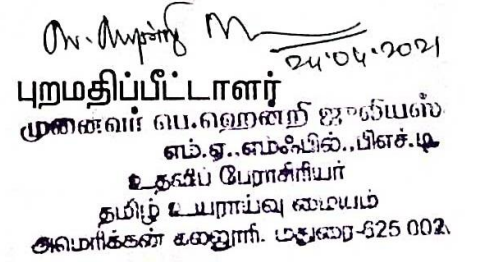 24.04.2021
புறமதிப்பீட்டாளர்
முனைவர் பெ.ஹென்றி ஜுலியஸ்
எம்.ஏ.,எம்ஃபில்.,பிஎச்.டி
உதவிப் பேராசிரியர்
தமிழ் உயராய்வு மையம்
அமெரிக்கன் கல்லூரி. மதுரை-625 002.